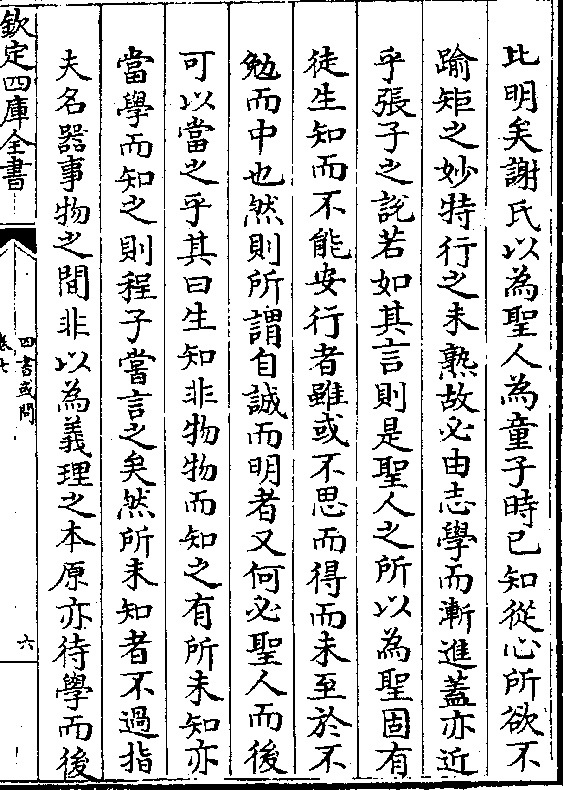 比明矣謝氏以為聖人為童子時已知從心所欲不
踰矩之妙特行之未熟故必由志學而漸進蓋亦近
乎張子之說若如其言則是聖人之所以為聖固有
徒生知而不能安行者雖或不思而得而未至於不
勉而中也然則所謂自誠而明者又何必聖人而後
可以當之乎其曰生知非物物而知之有所未知亦
當學而知之則程子嘗言之矣然所未知者不過指
夫名器事物之間非以為義理之本原亦待學而後
欽定四庫全書
四書或問
卷七
六